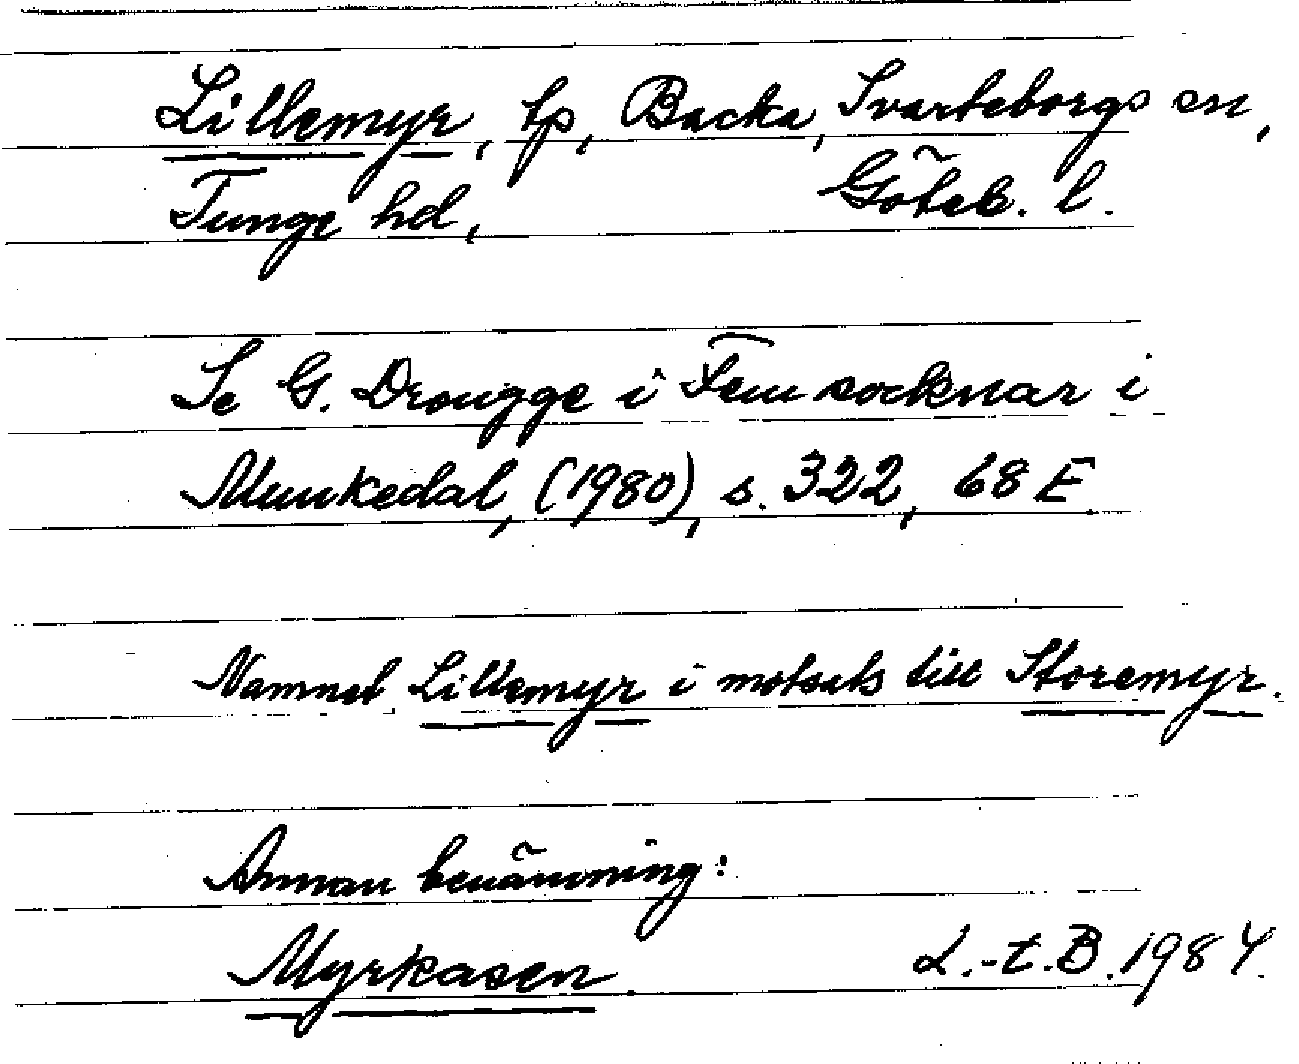 Lillemyr, tp, Backa, Svarteborgs sn,
Tunge hd, Göteb. l.
Se G. Drougge i Fem socknar i
Munkedal, (1980), s. 322, 68 E
Namnet Lillemyr i motsats till Storemyr.
Annan benämning:
Myrkasen. L.-t.B.1984.